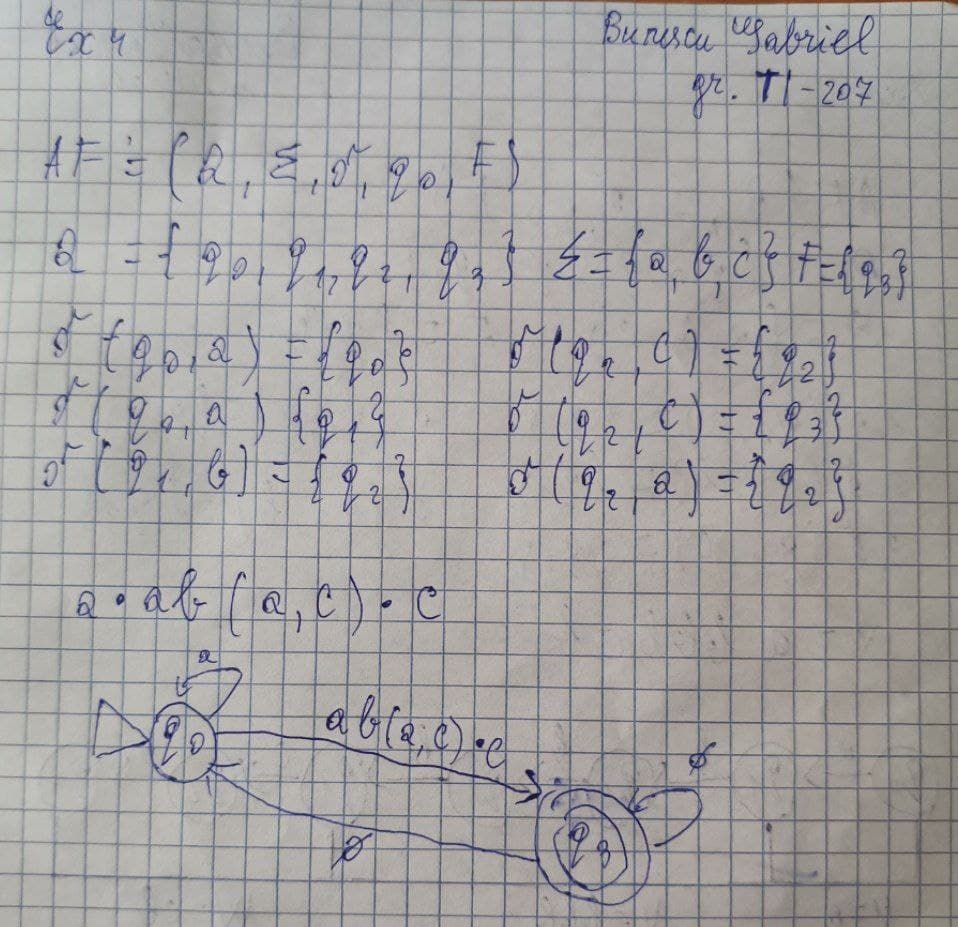 Ex 4
Bunescu Gabriel
gr. TI-207
AF = (Q, Σ, δ, q0, F)
Q = {q0, q1, q2, q3} Σ = {a, b, c} F = {q3}
δ(q0, a) = {q0} δ(q2, c) = {q2}
δ(q0, a) {q1} δ(q2, c) = {q3}
δ(q1, b) = {q2} δ(q2, a) = {q2}
a • ab (a, c) • c
a
q0
ab(a, c) • c
ø
q3
ø